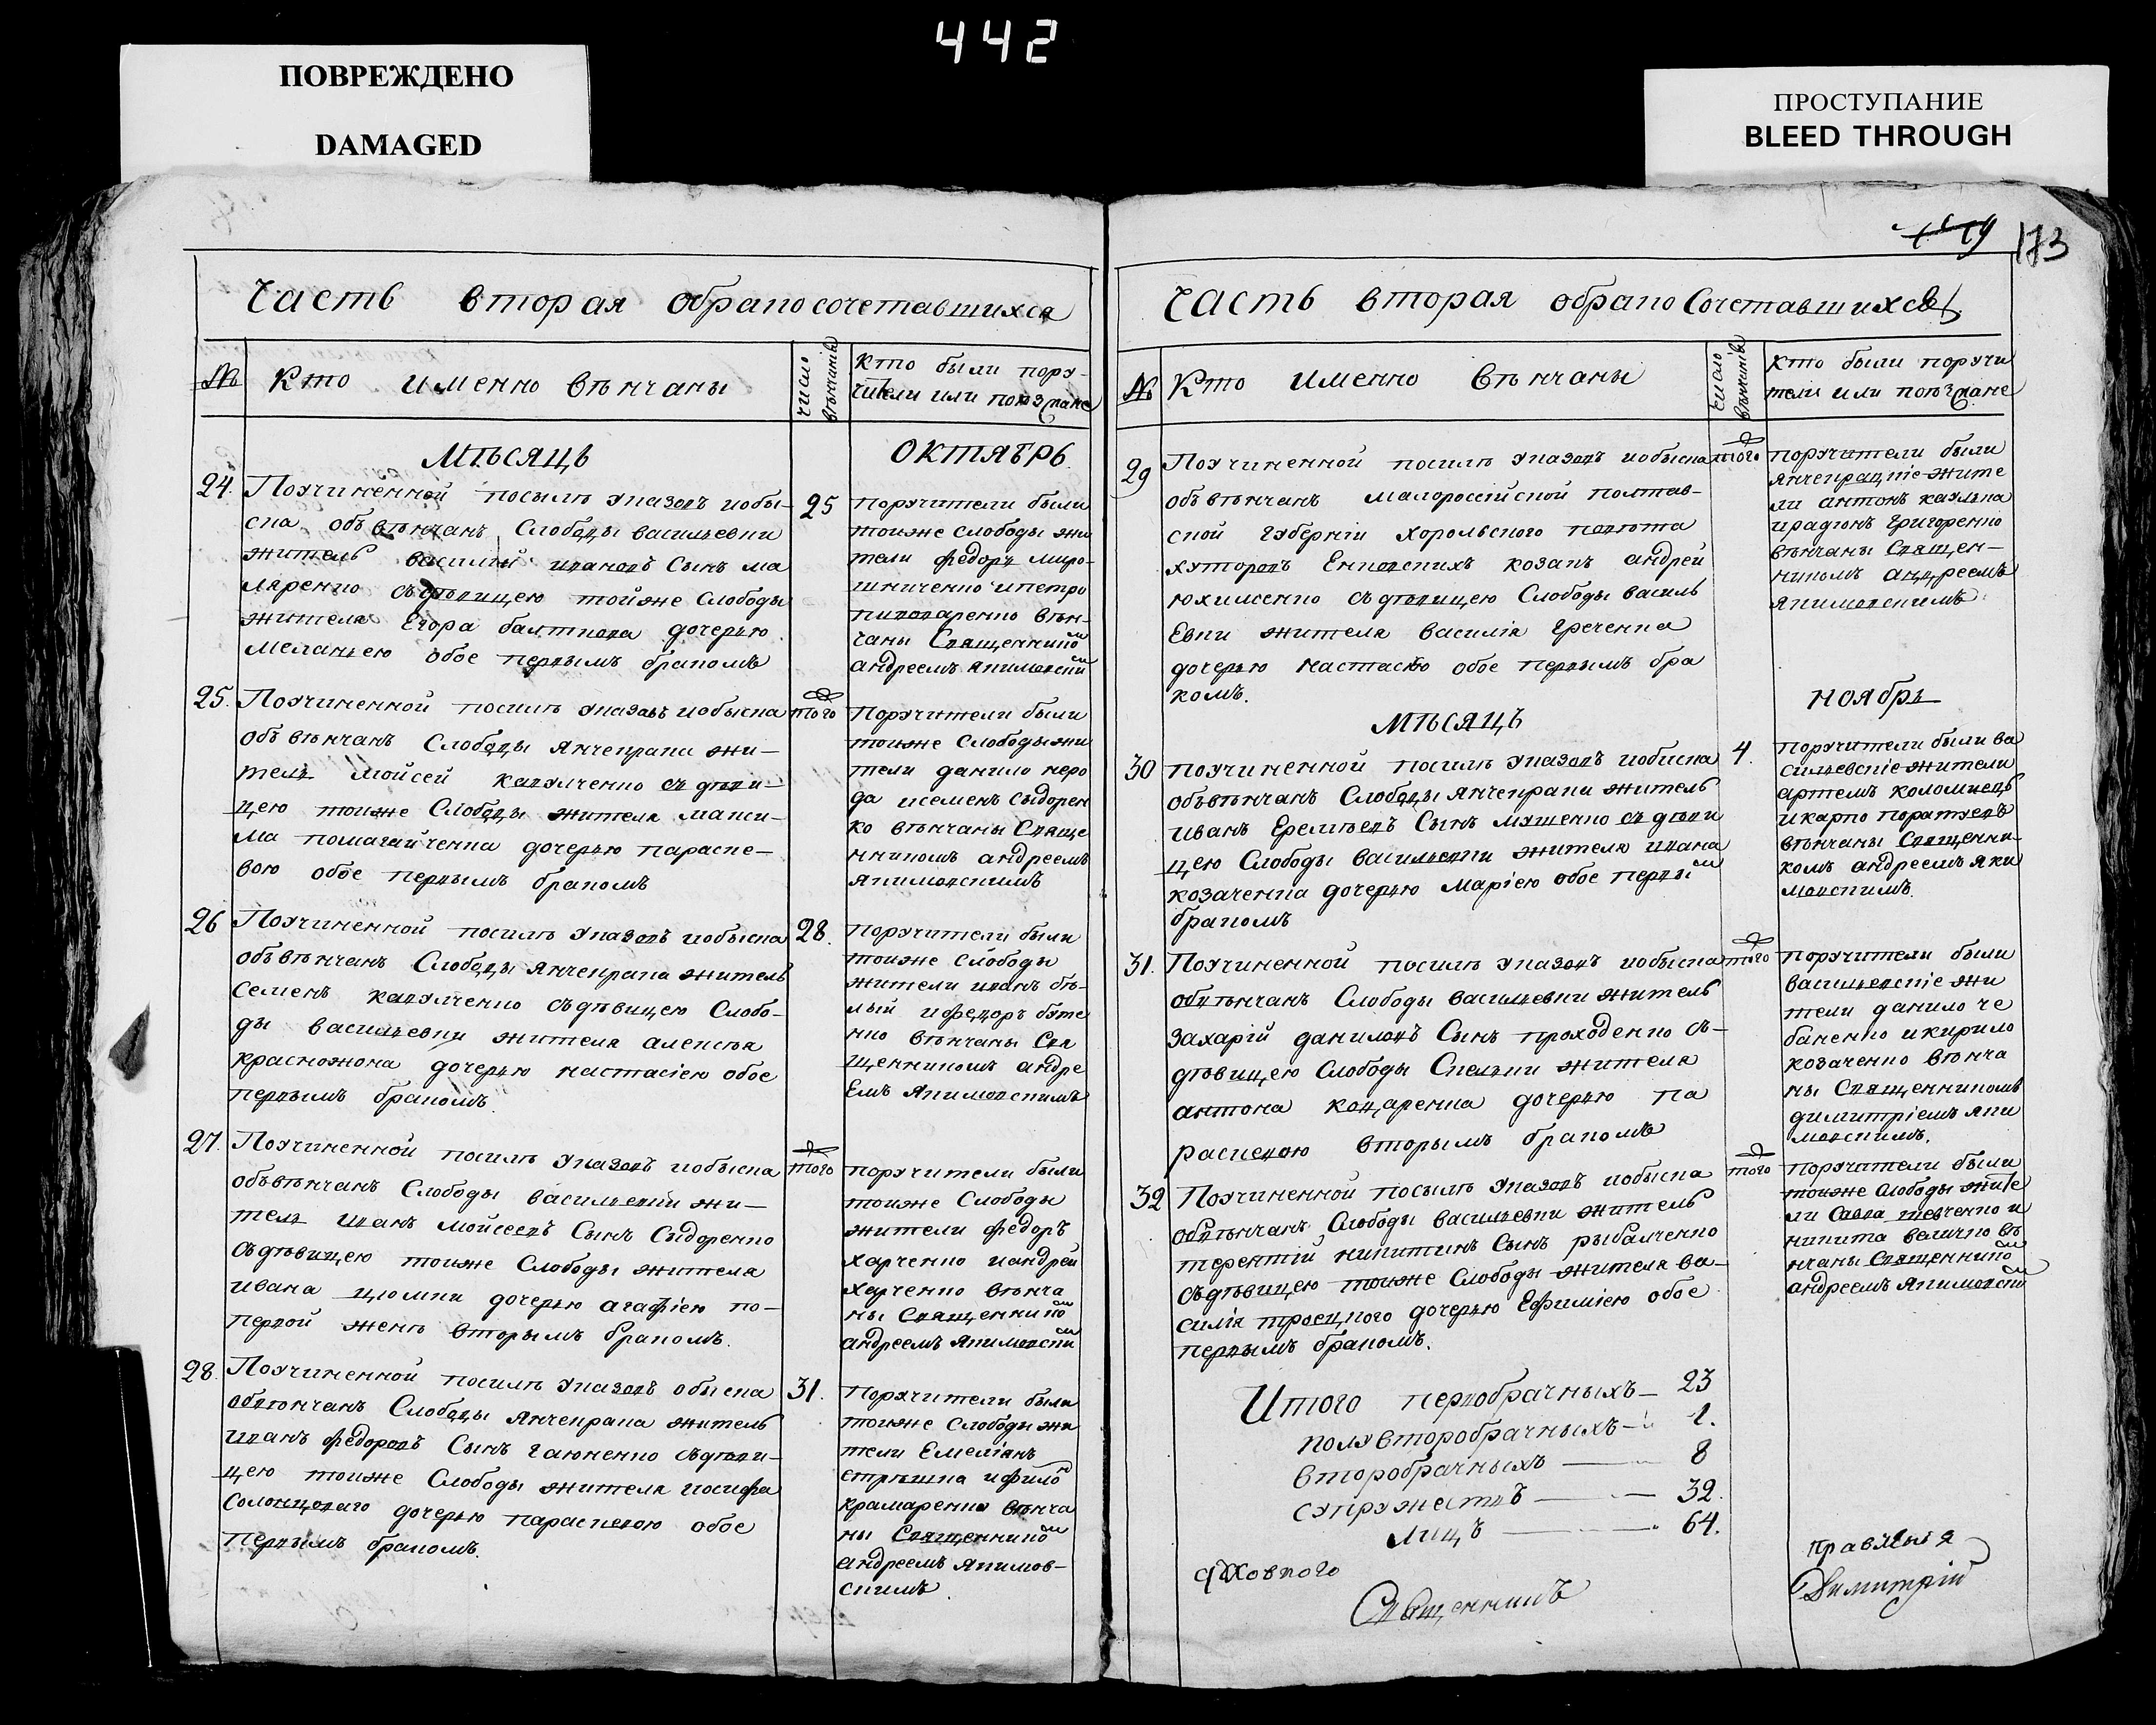 442
ПОВРЕЖДЕНО
DAMAGED
ПРОСТУПАНИЕ
BLEED THROUGH
173
Часть вторая обрако сочетавшихся
№
Кто именно вѣнчаны
число вѣнчанія
Кто были пору-
чители или поезжане
Мѣсяцъ
Октябрь
24.
Поучиненной посылѣ указовъ иобы-
ска объ вѣнчанъ Слободы василъевки
житель василий ивановъ Сынъ ма
ляренко съ дѣвицею тойже Слободы
жителя Егора балтнова дочерью
Меланьею обое первымъ бракомъ
25
поручители были
тоиже слободы жи
тели федоръ миро-
шниченко ипетро
пивоваренко вѣн-
чаны Священнико м
андреемъ якимовски м
25.
Поучиненной посилѣ указовъ иобыска
объ вѣнчанъ Слободы Янчекраки жи-
тель Мойсей кавулченко съ дѣви-
цею тоиже Слободы жителя макси-
ма помагайченка дочерью параске-
вою обое первымъ бракомъ
того
Поручители были
тоиже слободы жи
тели данило неро
да исеменъ сыдорен
ко вѣнчаны Свяще
нникомъ андреемъ
якимовскимъ
26
Поучиненной посилѣ указовъ иобыска
объвѣнчанъ Слободы Янчекрака житель
Семенъ кавулченко съдѣвицею Слобо-
ды васильевки жителя алексѣя
красножона дочерью настасіею обое
первымъ бракомъ.
28.
поручители были
тоиже слободы
жители иванъ бѣ-
лый ифедоръ буте
нко вѣнчаны Свя
щенникомъ андре
Емъ якимовскимъ
27.
Поучиненной посилѣ указовъ иобыска
объвѣнчанъ Слободы васильевки жи-
тель иванъ Мойсеевъ Сынъ Сыдоренко
съдѣвицею тоиже Слободы жителя
ивана цюмки дочерью агафіею по-
первой женѣ вторымъ бракомъ.
того
поручители были
тоиже Слободы
жители федоръ
харченко иандрей
харченко вѣнча
ны Священнико м
андреемъ якимовски м
28.
Поучиненной посилѣ указовъ обыска
обвѣнчанъ Слободы Янчекрака житель
иванъ федоровъ Сынъ гаюненко съдѣви-
цею тоиже Слободы жителя иосифа
Солонцоваго дочерью параскевою обое
первымъ бракомъ.
31.
поручители были
тоиже Слободы жи
тели Емеліянъ
стрѣшка ифило
крамаренко вѣнча
ны Священнико м
андреемъ якимов-
скимъ.
Часть вторая обрако Сочетавшихся
№
Кто именно вѣнчаны
число вѣнчанія
Кто были поручи
тели или поѣзжане
29
Поучиненной посилѣ указовъ иобыска
объвѣнчанъ малороссійской полтав-
ской губерніи Хорольского повѣта
хуторовъ Енковскихъ козакъ андрей
юхименко съдѣвицею Слободы василь
Евки жителя василія Греченка
дочерью настасѣю обое первымъ бра
комъ.
того
поручители были
янчекрацкіе жите
ли антонъ каулька
ирадіонъ Григоренко
вѣнчаны Священ-
никомъ андреемъ
якимовскимъ
Мѣсяцъ
ноябрь
30
поучиненной посилѣ указовъ иобиска
объвѣнчанъ Слободы Янчекраки житель
иванъ Еремѣевъ Сынъ Мушенко съ дѣви
цею Слободы васильевки жителя ивана
козаченка дочерью Маріею обое первы м
бракомъ
4.
поручители были ва
сильевскіе жители
артемъ коломиецъ
икарпо
вѣнчаны Священни-
комъ андреемъ яки
мовскимъ.
31.
Поучиненной посилѣ указовъ иобыска
обвѣнчанъ Слободы васильевки житель
Захарій даниловъ Сынъ проходенко съ-
дѣвицею Слободы Скельки жителя
антона коцаренка дочерью па
раскевою вторымъ бракомъ
того
поручители были
васильевскіе жи
тели данило че
баненко икирило
козаченко вѣнча
ны Священникомъ
димитріемъ яки
мовскимъ.
32
Поучиненной посылѣ указовъ иобыска
обвѣнчанъ Слободы васильевки житель
терентій никитинъ Сынъ рыбалченко
съдѣвицею тоиже Слободы жителя ва-
силія троецкого дочерью Ефиміею обое
первымъ бракомъ.
того
поручители были
тоиже слободы жите
ли Савва шевченко и
никита величко вѣ
нчаны Священнико м
андреемъ якимовски м
Итого первобрачныхъ — 23
полувторобрачныхъ — 1.
второбрачныхъ — 8
супружествъ — 32.
лицъ — 64.
духовного
правленія
Священникъ
Димитрій